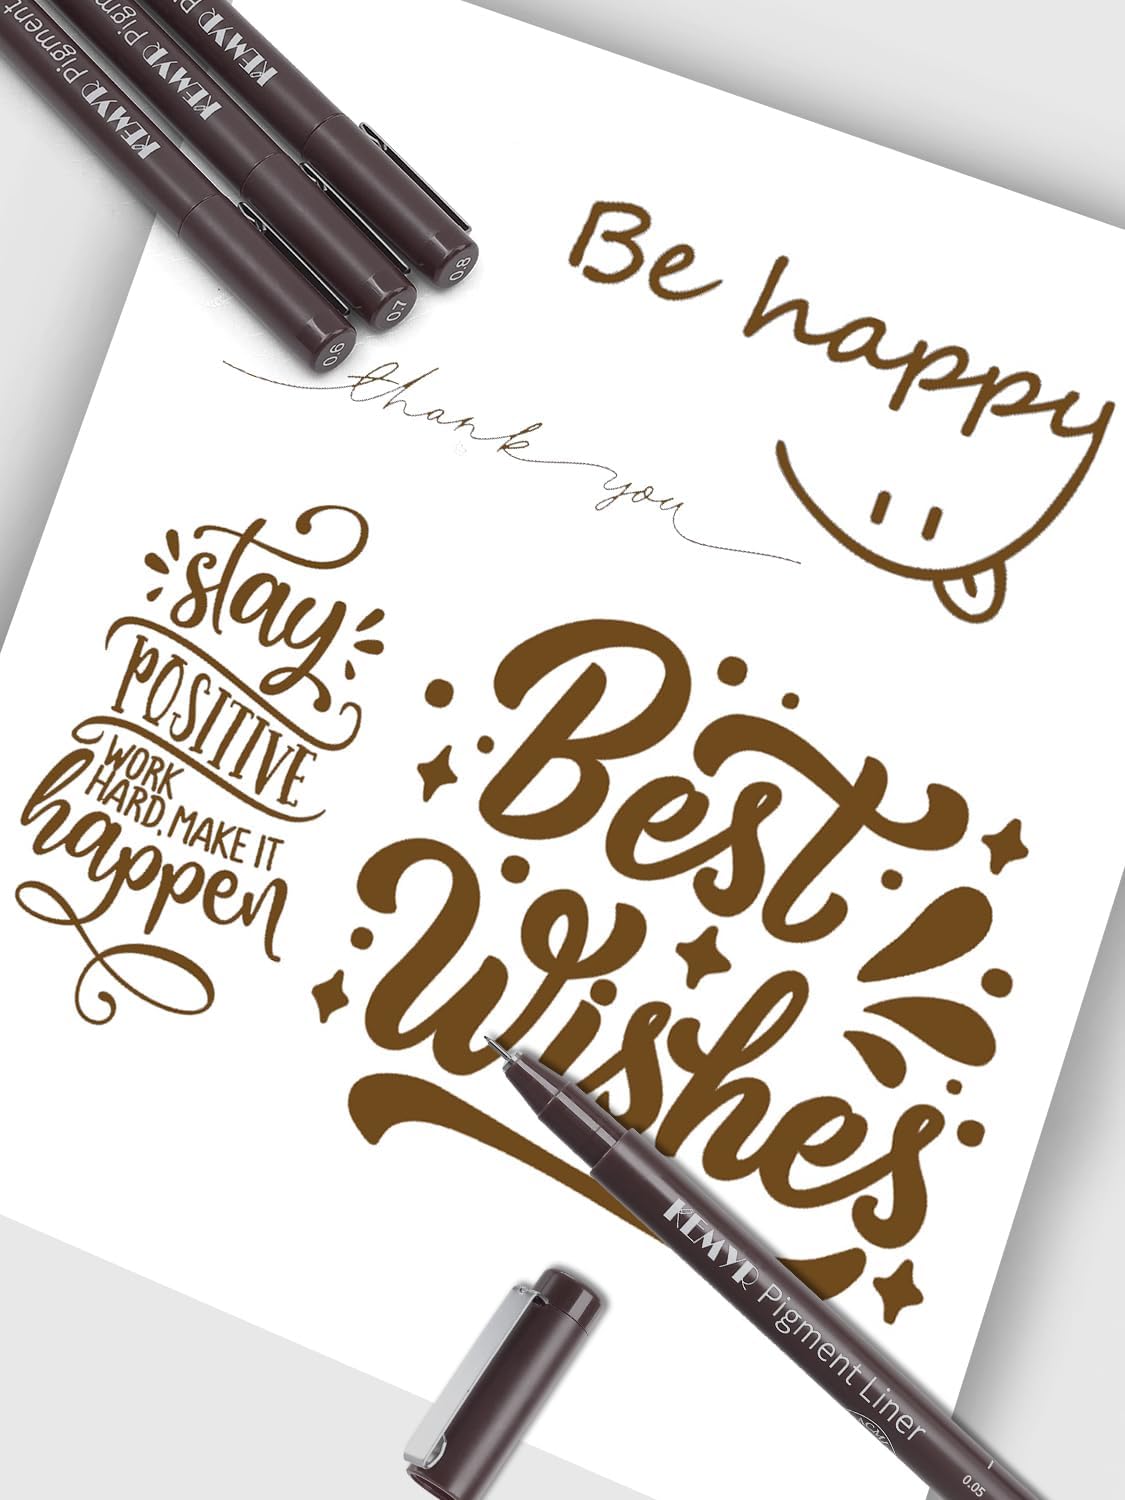 KEMYR Pigment
KEMYR Pigm
KEMYR Pig
0.6
0.7
0.8
Be happy
thank you
stay
POSITIVE
WORK
HARD, MAKE IT
happen
Best
Wishes
KEMYR Pigment Liner
0.05